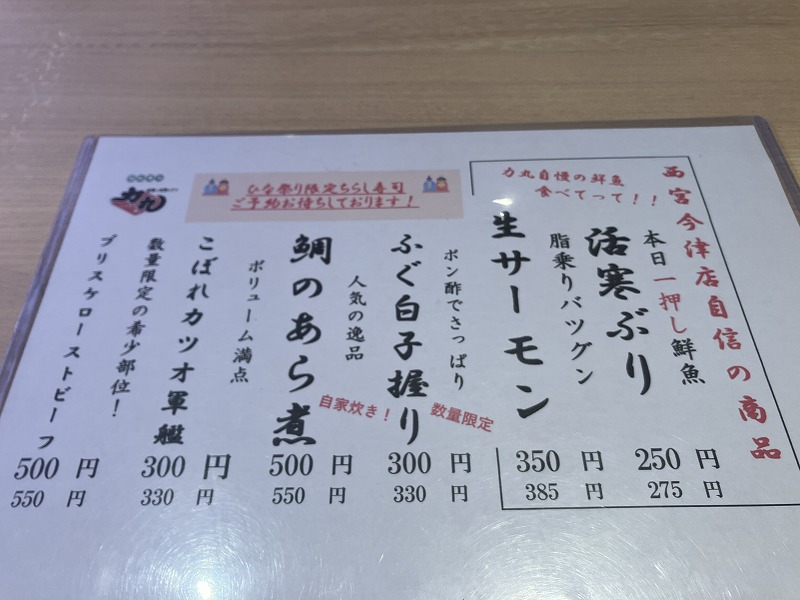 西宮今津店自信の商品
力丸自慢の鮮魚
食べてって！！
本日一押し鮮魚
活寒ぶり
250 円
275 円
脂乗りバツグン
生サーモン
350 円
385 円
ひな祭り限定ちらし寿司
ご予約お待ちしております！
ポン酢でさっぱり
ふぐ白子握り
数量限定
300 円
330 円
人気の逸品
鯛のあら煮
自家炊き！
500 円
550 円
ボリューム満点
こぼれカツオ軍艦
300 円
330 円
数量限定の希少部位！
ブリスケローストビーフ
500 円
550 円
力丸